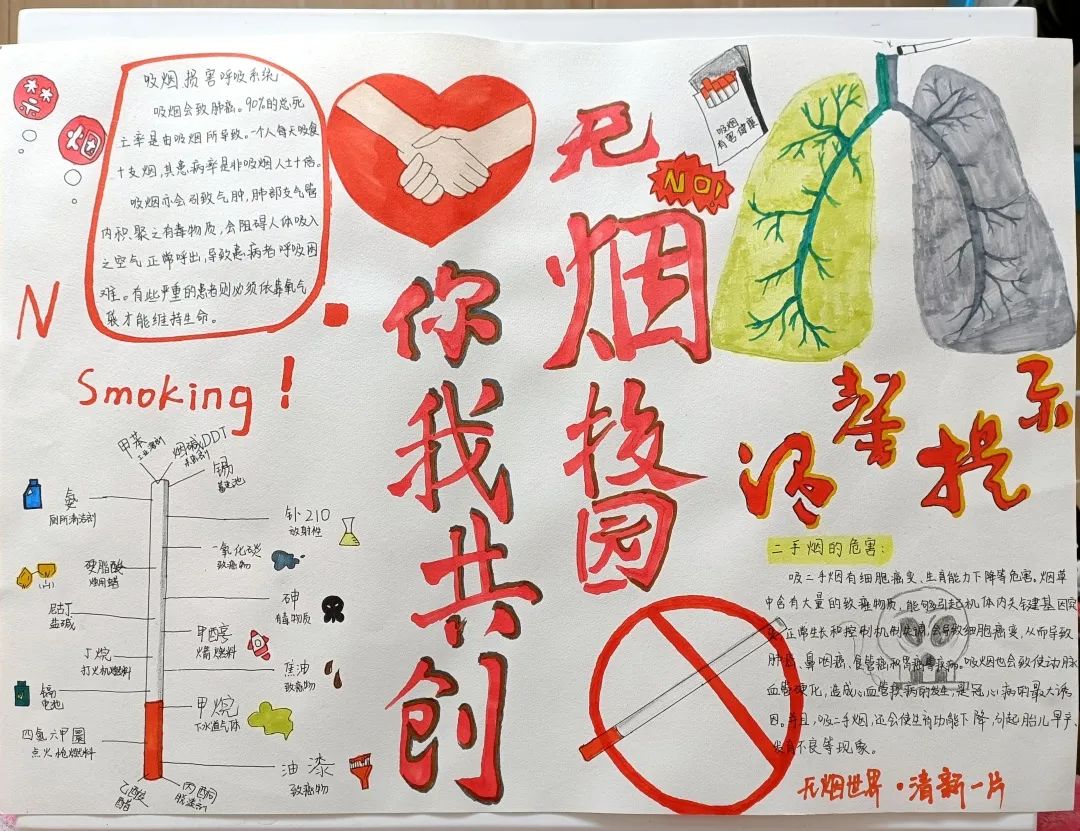 吸烟损害呼吸系统
吸烟会致肺癌。90%的总死
亡率是由吸烟所导致。一个人每天吸食
十支烟,其患病率是非吸烟人士十倍。
吸烟亦会引致气肿,肺部支气管
内积聚之有毒物质,会阻碍人体吸入
之空气正常呼出,导致患病者呼吸困
难。有些严重的患者则必须依靠氧气
袋才能维持生命。
烟
N
Smoking!
无烟校园
你我共创
NO!
吸烟
有害健康
温馨提示
甲苯
工业溶剂
烟碱DDT
杀虫剂
镉
蓄电池
氨
厕所清洁剂
钋210
放射性
硬脂酸
烛用蜡
一氧化碳
致癌物
尼古丁
盐碱
砷
有毒物质
丁烷
打火机燃料
甲醇
火箭燃料
焦油
致癌物
镉
电池
甲烷
下水道气体
四氢六甲圜
点火枪燃料
油漆
致癌物
乙酸
醋
丙酮
脱漆剂
二手烟的危害:
吸二手烟有细胞癌变、生育能力下降等危害。烟草
中含有大量的致癌物质,能够引起机体内关键基因突
变,正常生长和控制机制失调,会导致细胞癌变,从而导致
肺癌、鼻咽癌、食管癌和胃癌等疾病。吸烟也会致使动脉
血管硬化,造成心血管疾病的发生,是冠心病的最大诱
因。并且,吸二手烟,还会使生育功能下降,引起胎儿早产、
发育不良等现象。
无烟世界·清新一片